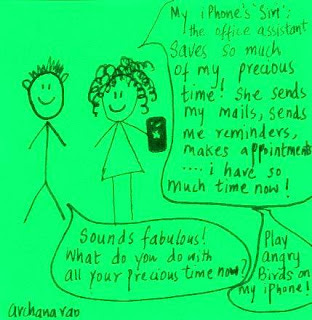 My iPhone's 'Siri';
the office assistant
saves so much
of my precious
time! She sends
my mails, sends
me reminders,
makes appointments
.... i have so
much time now!
Sounds fabulous!
What do you do with
all your precious time now?
Play
Angry
Birds on
my iphone!
archanarao